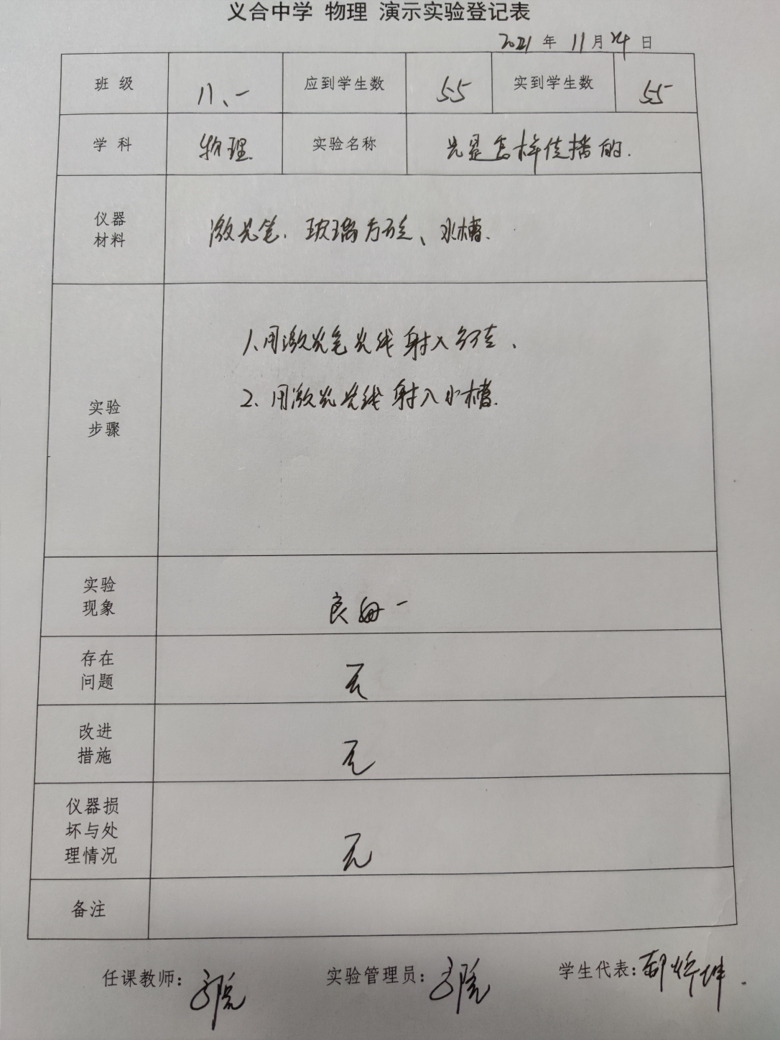 义合中学 物理 演示实验登记表
2021 年 11 月 24 日
班 级 八、一 应到学生数 55 实到学生数 55
学 科 物理 实验名称 光是怎样传播的.
仪器
材料
激光笔、玻璃方砖、水槽.
实验
步骤
1.用激光笔光线射入
2.用激光光线射入水槽.
实验
现象
良好
存在
问题
无
改进
措施
无
仪器损
坏与处
理情况
无
备注
任课教师:
实验管理员:
学生代表: